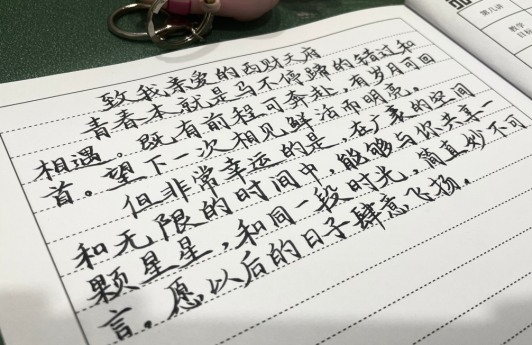 致我亲爱的西财天府
青春本就是马不停蹄的错过和
相遇。既有前程可奔赴,有岁月可回
首。望下一次相见鲜活而明亮。
但非常幸运的是,在广袤的空间
和无限的时间中,能够与你共享一
颗星星,和同一段时光,简直妙不可
言。愿以后的日子肆意飞扬。
第几讲
教学
目标